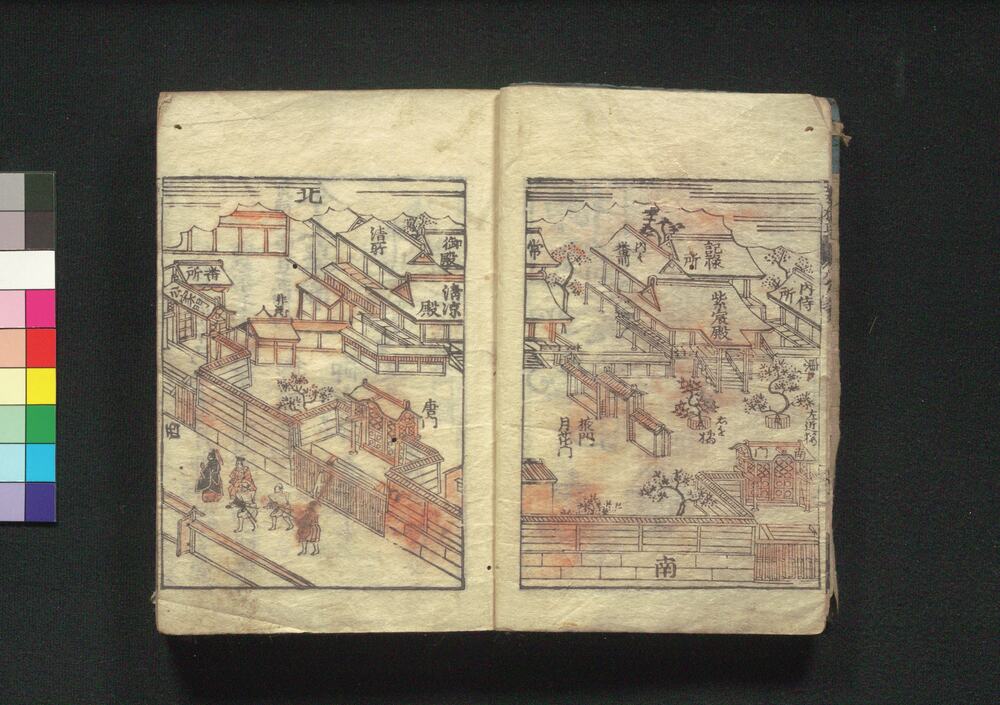 内侍所
左近桜
南門
記録所
紫宸殿
右近橘
内々
番所
月花門
南
常
御殿
清涼殿
清所
唐門
北
番所
西